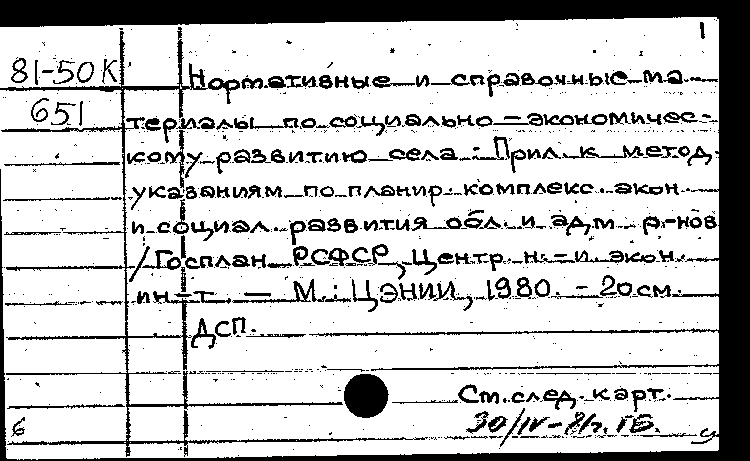 1
81-50К Нормативные и справочные ма-
651 териалы по социально-экономичес-
кому развитию села : Прил. к метод.
указаниям по планир. комплекс. экон
и социал. развития обл. и адм р-нов
/ Госплан РСФСР, Центр н.-и. экон.
ин-т. — М. : ЦЭНИИ, 1980. - 20 см.
ДСП.
См. след. карт.
30/IV-81г. ГБ.
6